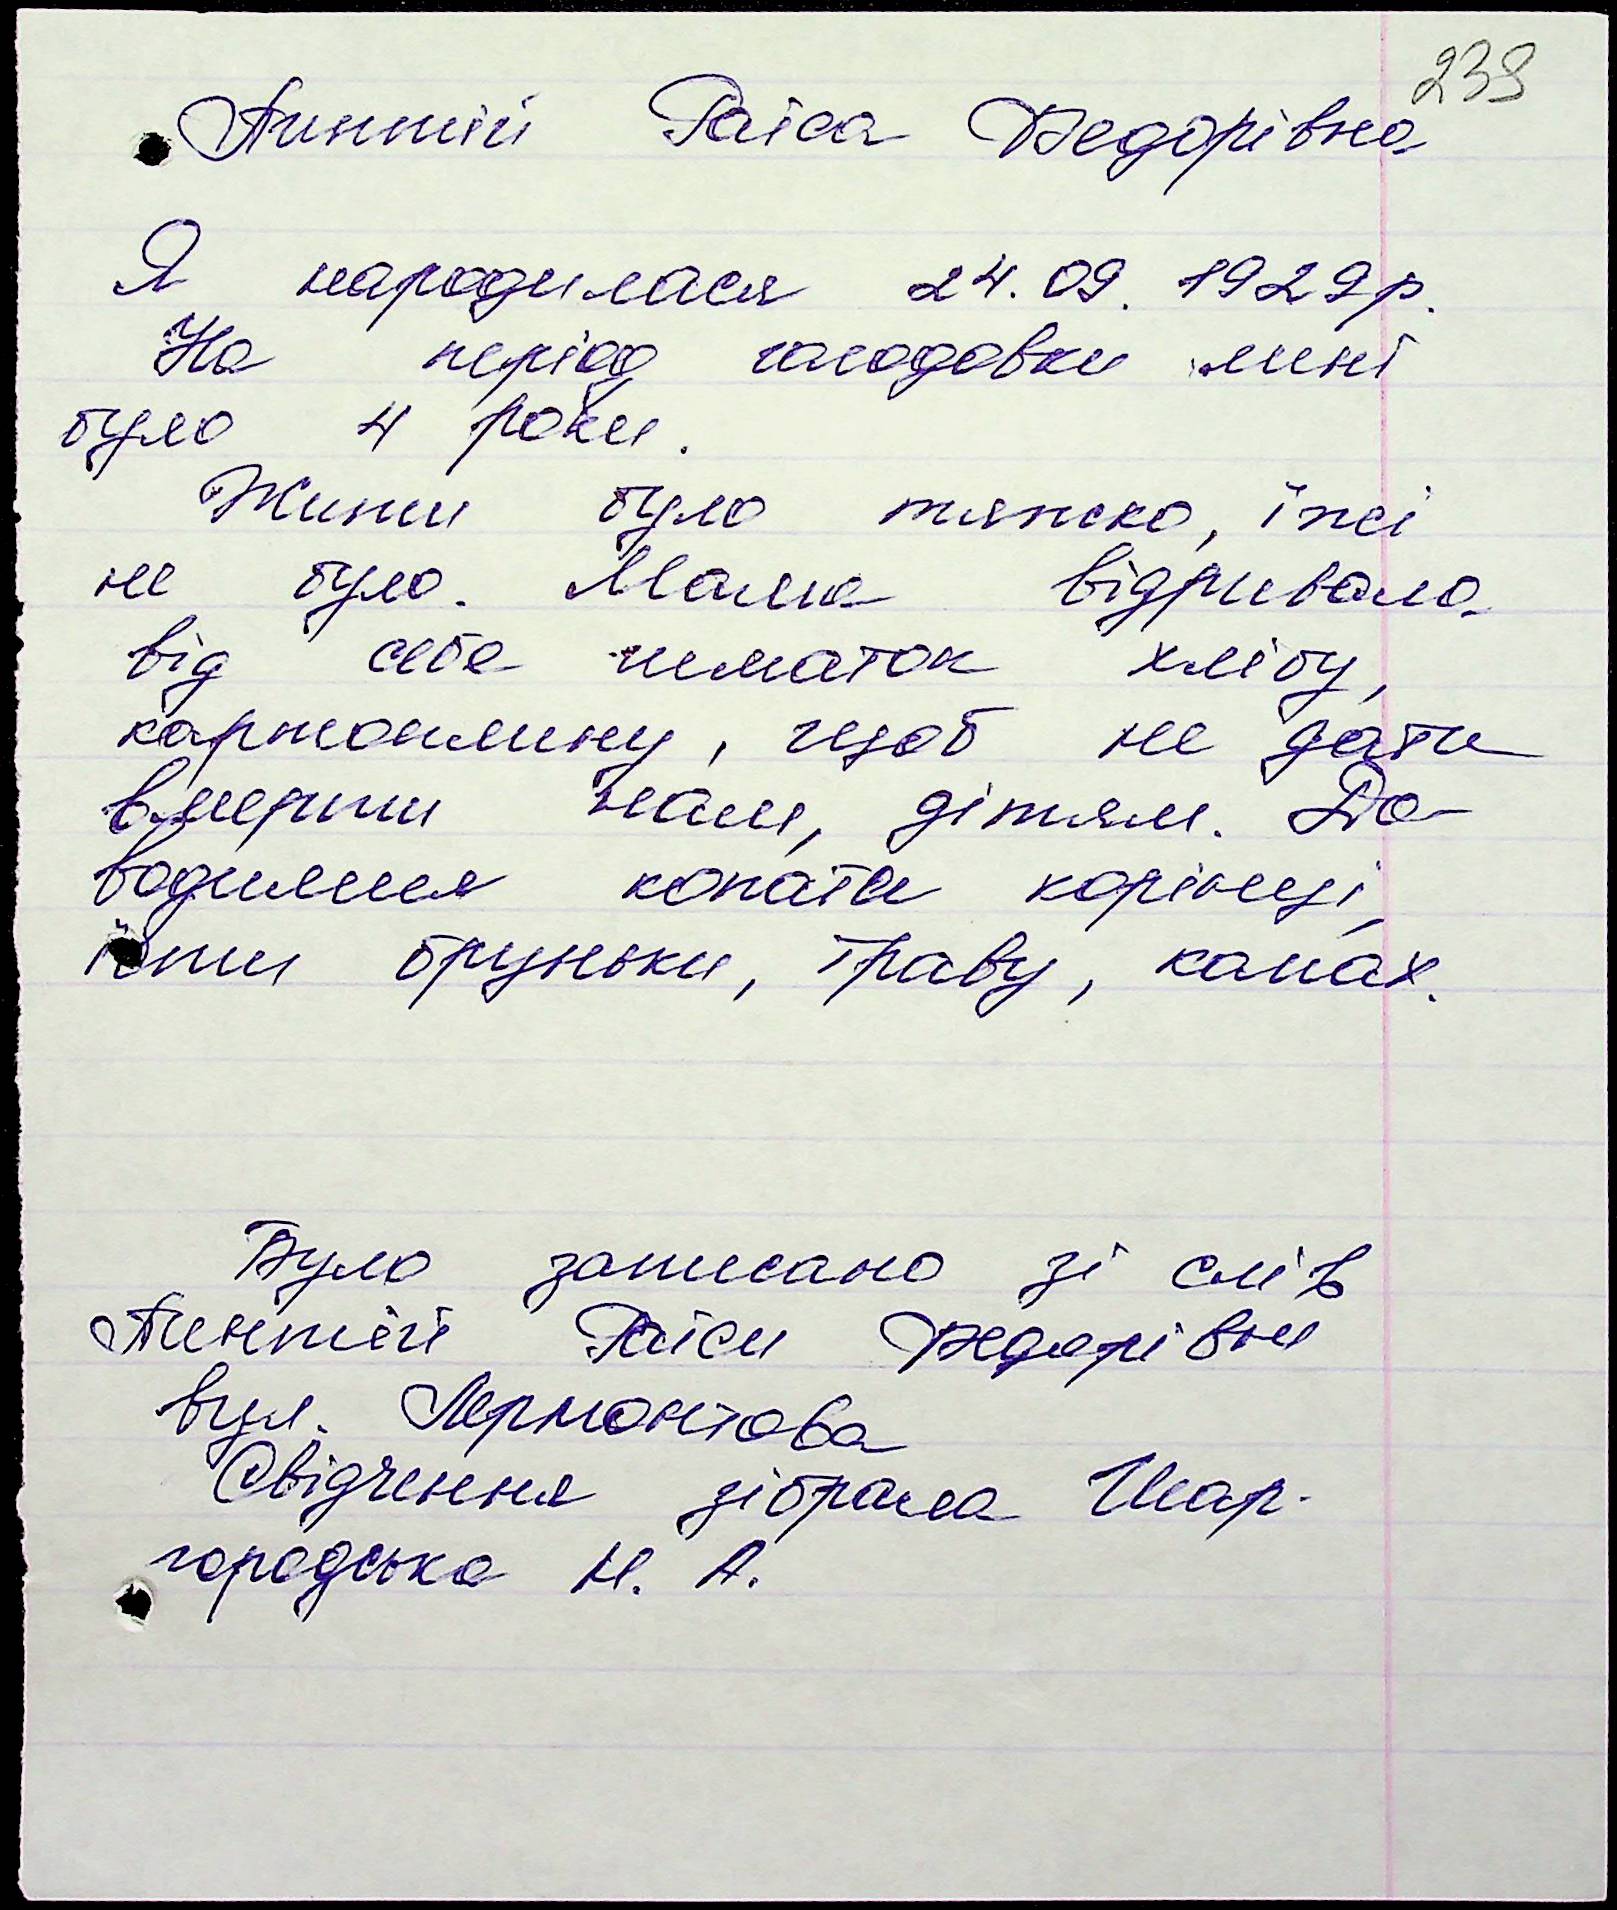 239
Линтій Раїса Федорівна
Я народилася 24.09.1929р.
На період голодовки мині
було 4 роки.
Жити було тяжко, їжі
не було. Мама відривала
від себе шматок хлібу,
картоплину, щоб не дати
вмерти нам, дітям. До-
водилися копати корінці,
їсти бруньки, траву, капах.
Було записано зі слів
Линтій Раїси Федорівни
вул. Лермонтова
Свідчення зібрала Шар-
городська Н. А.